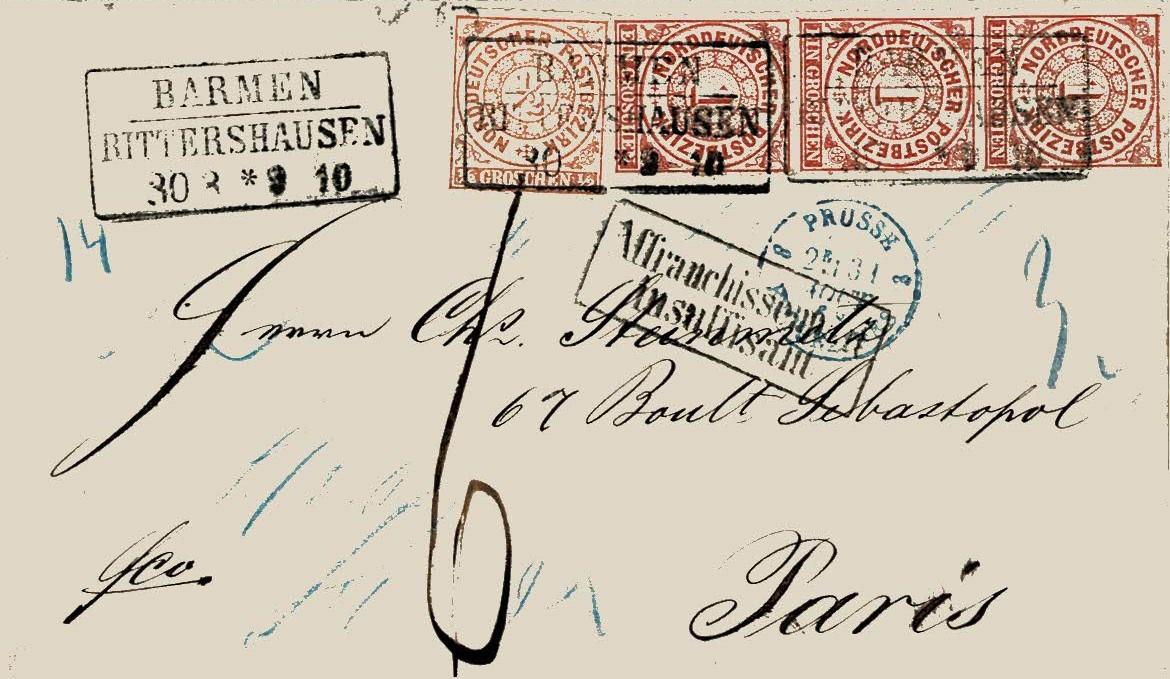 BARMEN
RITTERSHAUSEN
30 8 * 9 10
NORDDEUTSCHER POSTBEZIRK
GROSCHEN
NORDDEUTSCHER POSTBEZIRK
1
EIN GROSCHEN
NORDDEUTSCHER POSTBEZIRK
1
EIN GROSCHEN
NORDDEUTSCHER POSTBEZIRK
1
EIN GROSCHEN
14
PRUSSE
31
AOUT
Affranchissement
insuffisant
3
Herrn Chs.
67 Boult Sebastopol
6
fco.
Paris